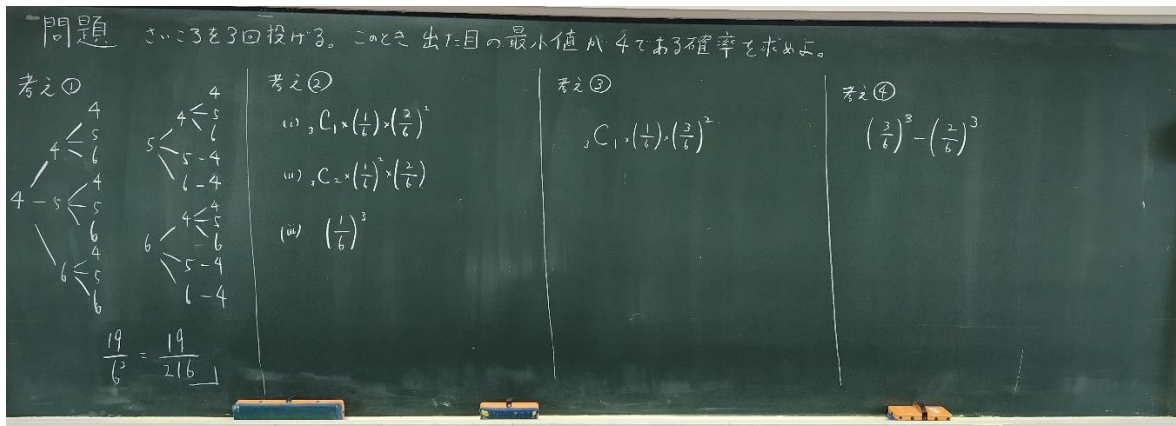 問題 さいころを3回投げる。このとき出た目の最小値が4である確率を求めよ。
考え①
4
4
5
6
4
5
4
5
6
6
4
5
6
5
4
4
5
6
5-4
6-4
6
4
4
5
6
5-4
6-4
19/6³ = 19/216
考え②
(i) ₃C₁×(1/6)×(2/6)²
(ii) ₃C₂×(1/6)²×(2/6)
(iii) (1/6)³
考え③
₃C₁×(1/6)×(3/6)²
考え④
(3/6)³-(2/6)³